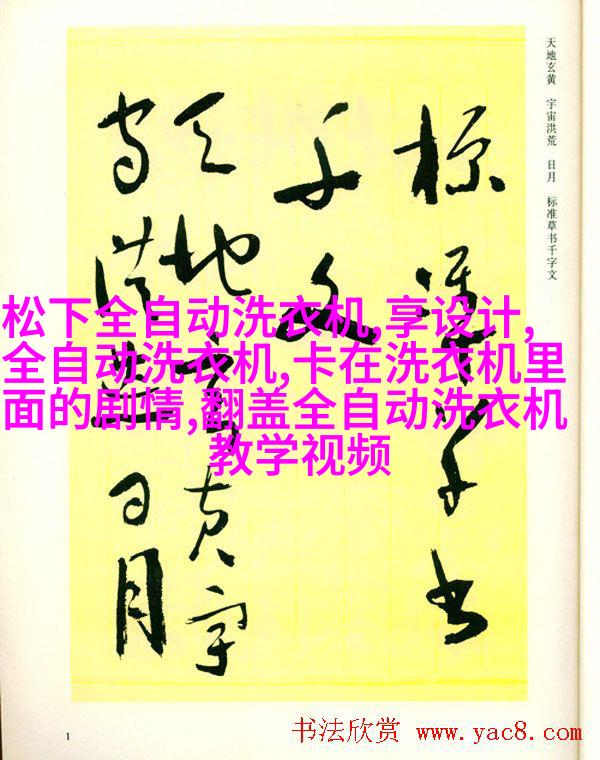 天地玄黄 宇宙洪荒 日月 标准草书千字文
標準草书
千文
天地玄黄宇
宙洪荒日月
松下全自动洗衣机,享设计,
全自动洗衣机,卡在洗衣机里
面的剧情,翻盖全自动洗衣机
教学视频
1
书法欣赏 www.yac8.com